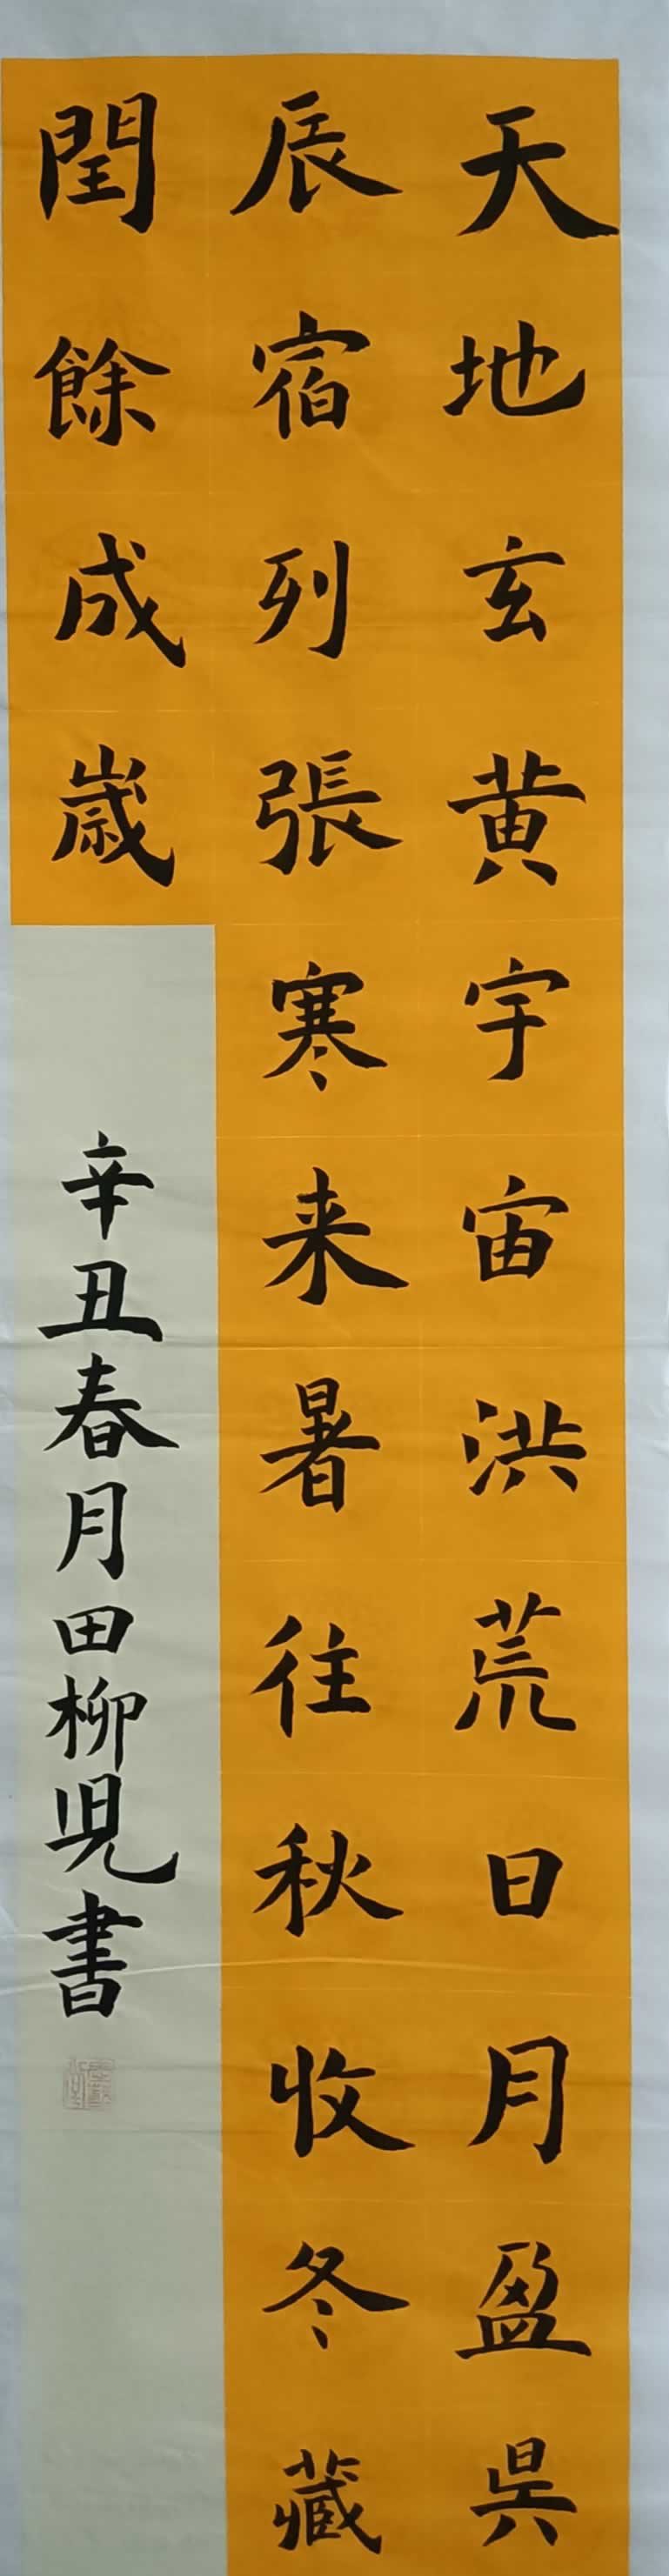 天地玄黄宇宙洪荒日月盈昃
辰宿列張寒来暑往秋收冬藏
閏餘成歲
辛丑春月田柳児書